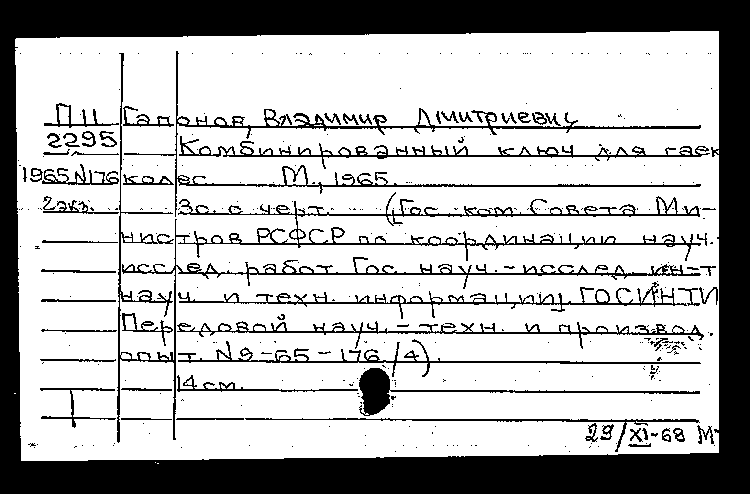 П 11 Гапонов, Владимир Дмитриевич
2295 Комбинированный ключ для гаек
1965 N176 колес. М., 1965.
2 экз. 3 с. с черт. (Гос. ком. Совета Ми-
нистров РСФСР по координации науч.-
исслед. работ. Гос. науч.-исслед. ин-т
науч. и техн. информации. ГОСИНТИ
Передовой науч.-техн. и производ.
опыт. N 9-65-176/4).
14 см.
29/XI-68 М